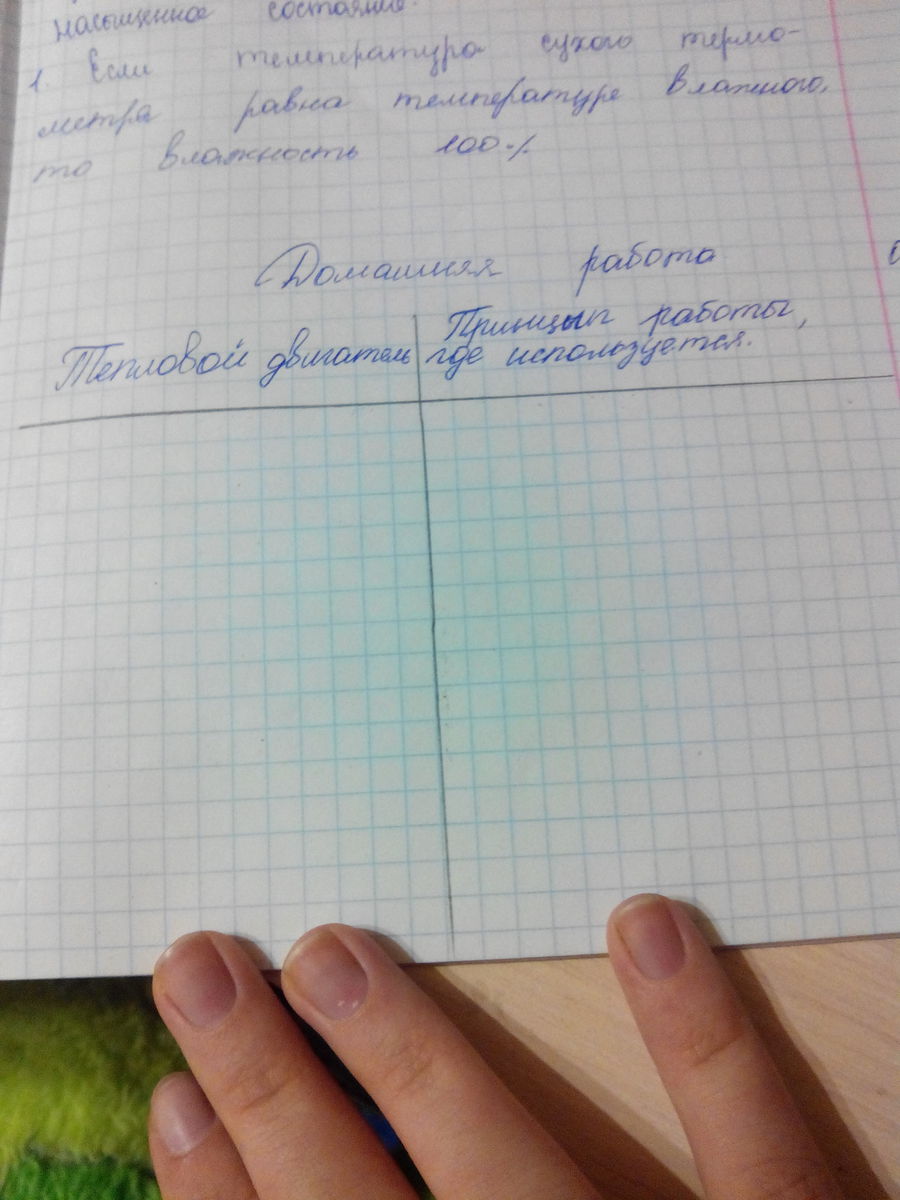 насыщенное состояние.
1. Если температура сухого термо-
метра равна температуре влажного,
то влажность 100%
Домашняя работа
Тепловой двигатель
Принцып работы,
где используется.